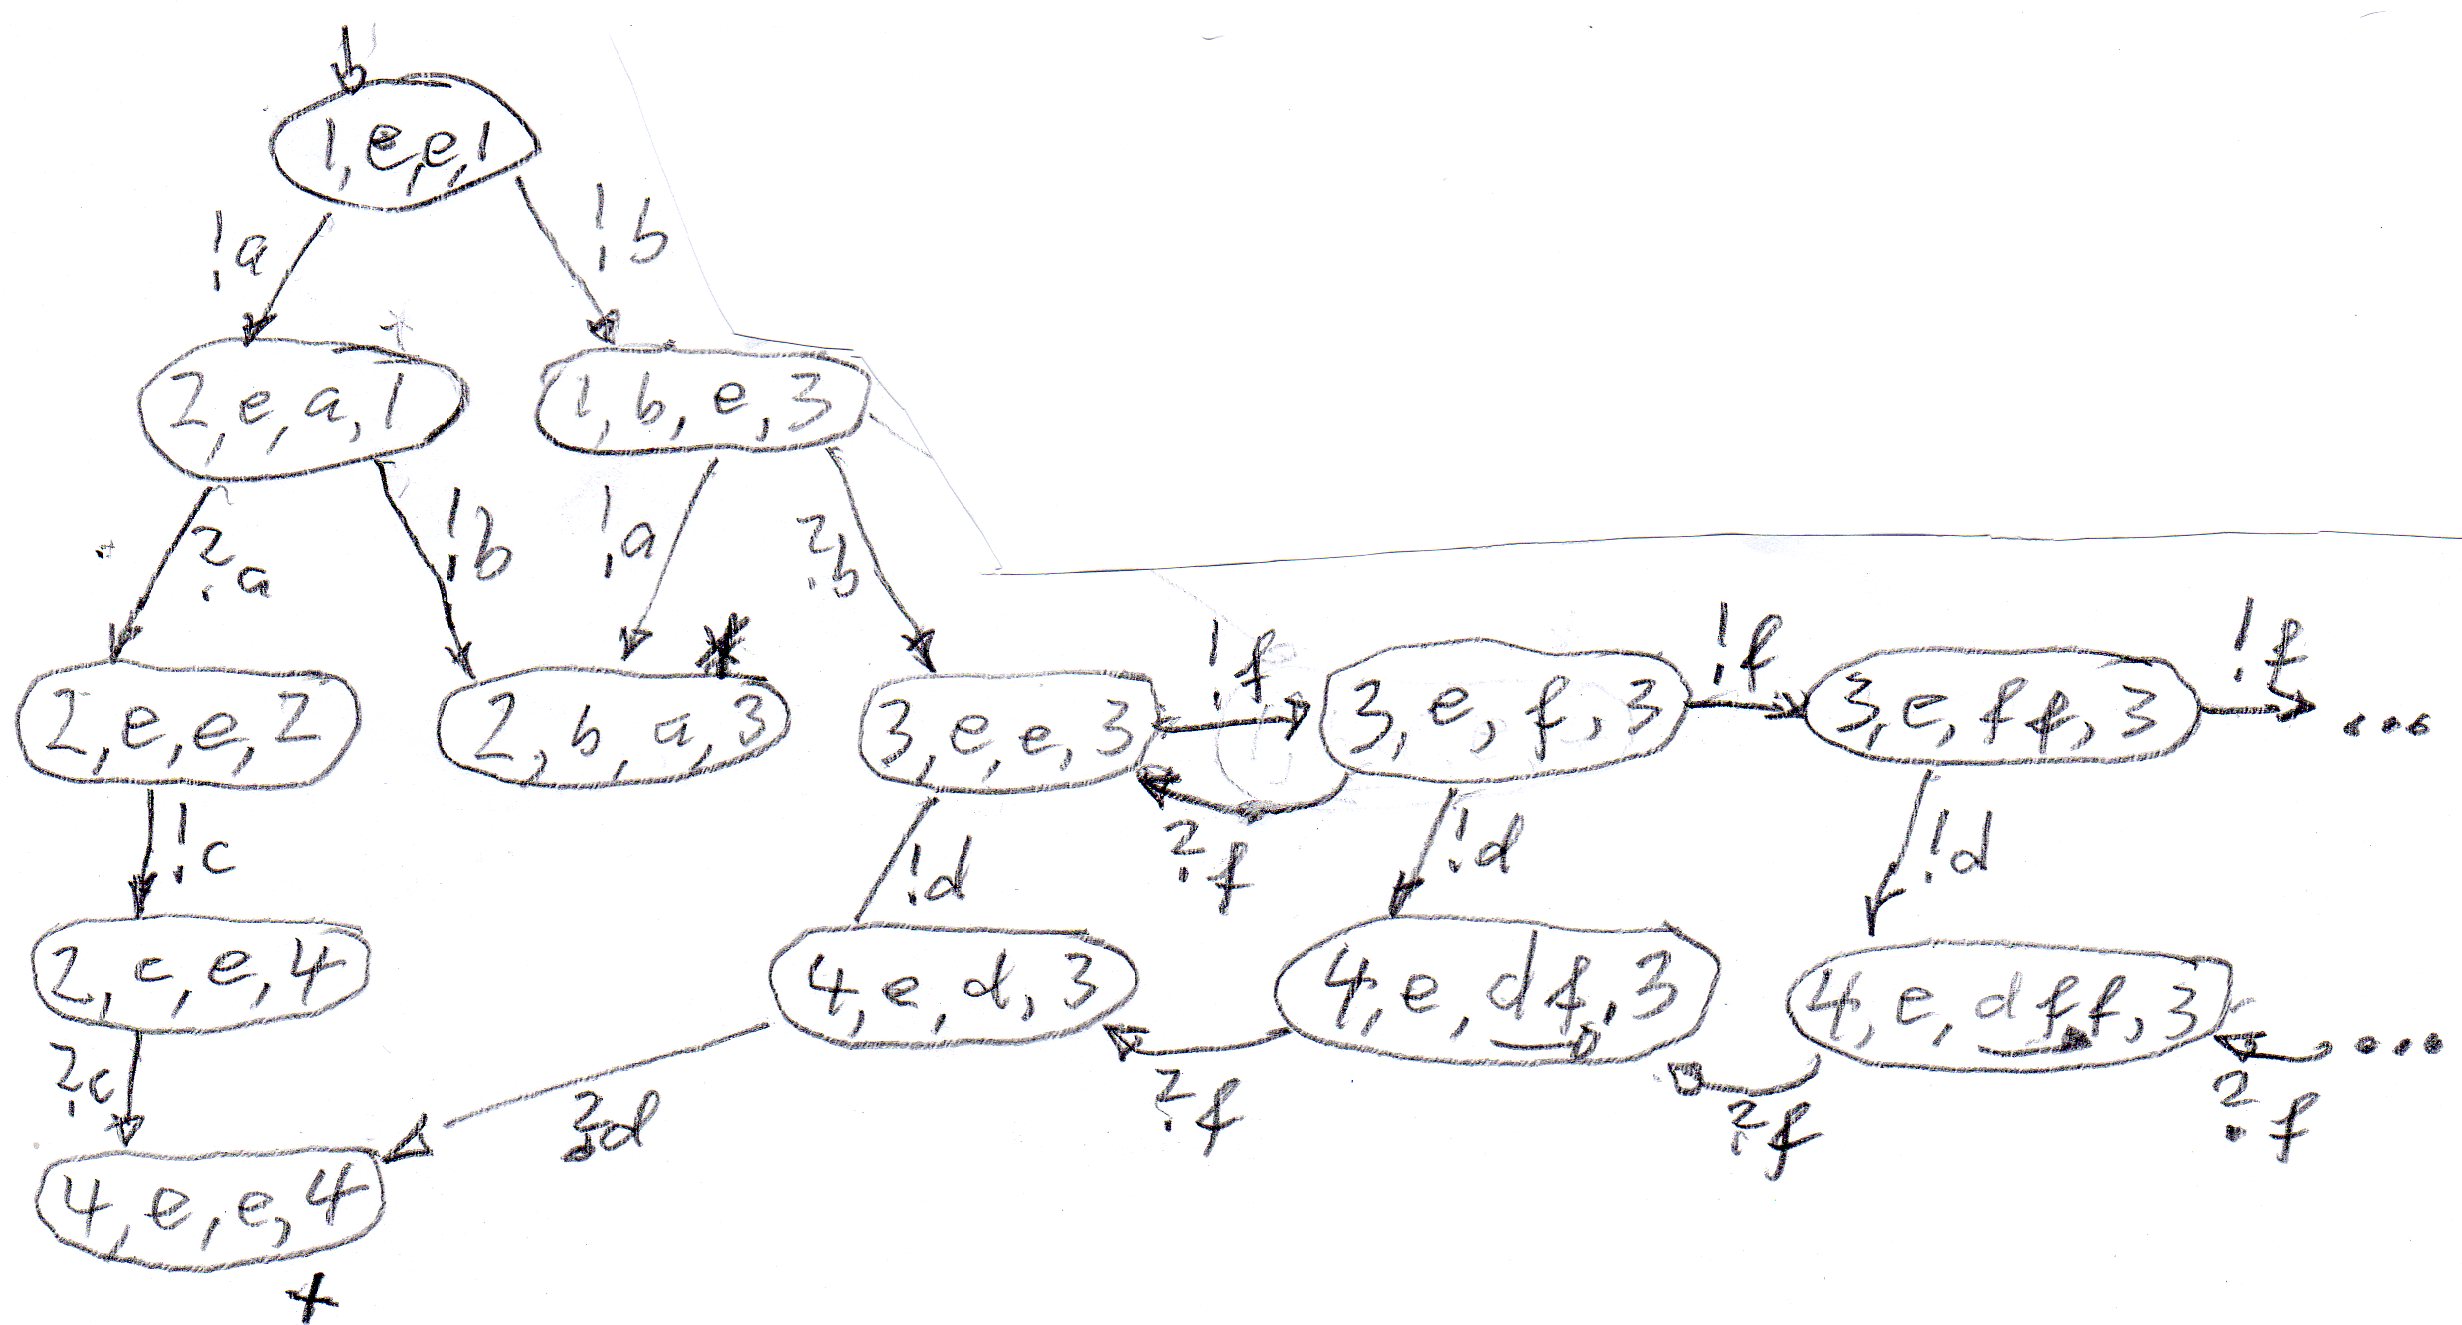 1,e,e,1
!a !b
2,e,a,1 1,b,e,3
?a !b !a ?b
* !f !f !f
2,e,e,2 2,b,a,3 3,e,e,3 3,e,f,3 3,e,ff,3 ...
!c !d ?f !d !d
2,c,e,4 4,e,d,3 4,e,df,3 4,e,dff,3 ...
?c ?d ?f ?f ?f
4,e,e,4
+